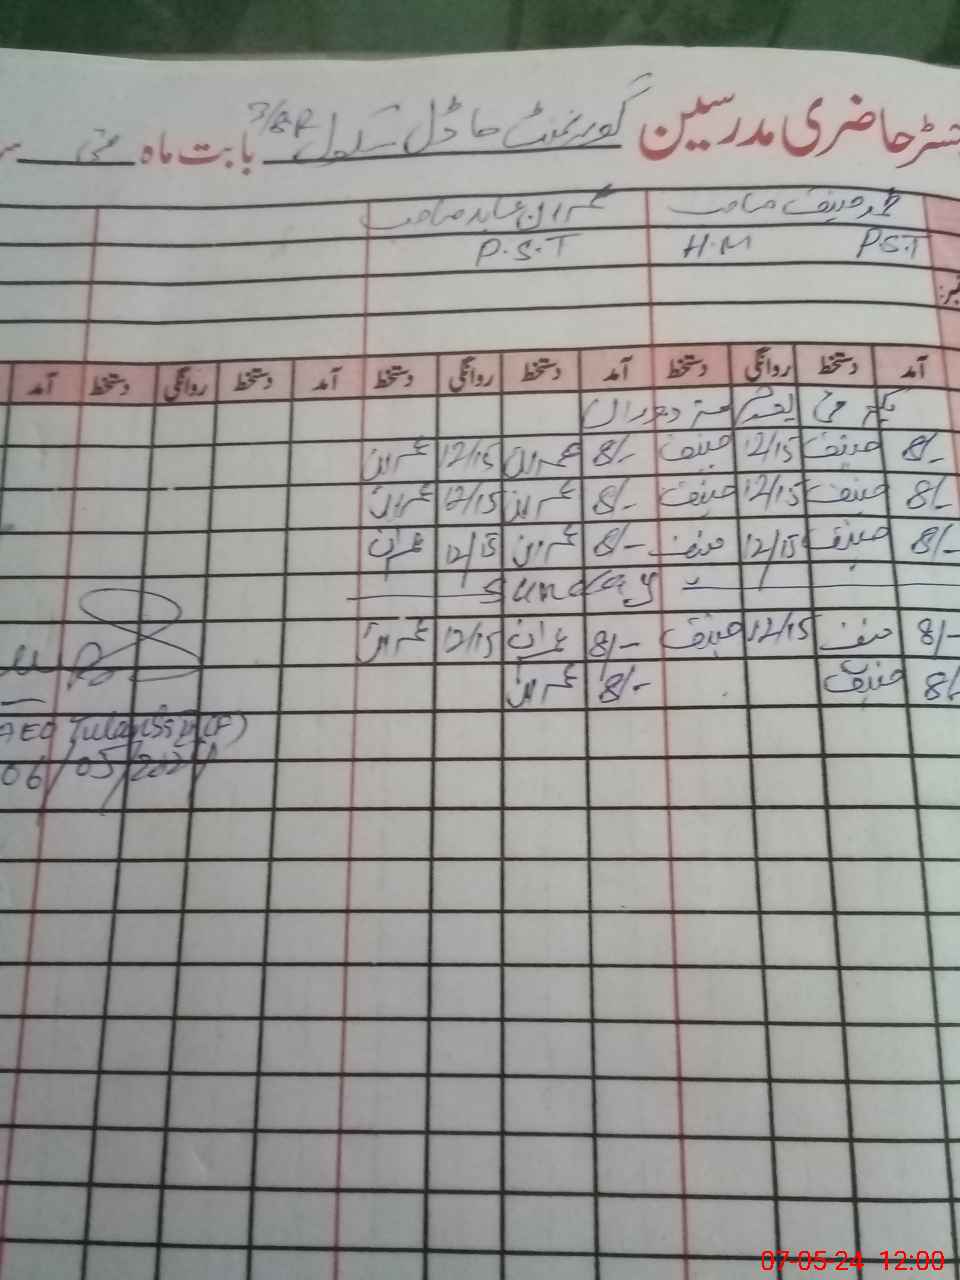 رجسٹر حاضری مدرسین گورنمنٹ ماڈل سکول 3/8-R بابت ماہ مئی
محمد حنیف صاحب عمران عابد صاحب
P.S.T H.M P.S.T
نمبر
آمد دستخط روانگی دستخط آمد دستخط روانگی دستخط آمد دستخط روانگی دستخط آمد
یکم مئی یوم مزدوراں
8/- حنیف 12/15 حنیف 8/- عمران 12/15 عمران
8/- حنیف 12/15 حنیف 8/- عمران 12/15 عمران
8/- حنیف 12/15 حنیف 8/- عمران 12/15 عمران
Sunday
8/- حنیف 12/15 حنیف 8/- عمران 12/15 عمران
8/- حنیف 8/- عمران
AEO
06/05/2024
07-05-24 12:00